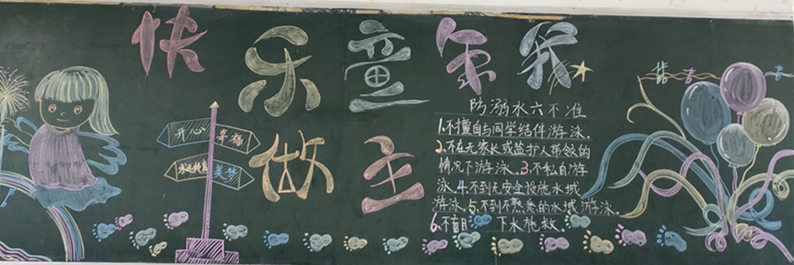 快乐童年我
做主
开心
幸福
美梦
防溺水六不准
1.不擅自与同学结伴游泳.
2.不在无家长或监护人带领的
情况下游泳.3.不私自游
泳.4.不到无安全设施水域
游泳.5.不到不熟悉的水域游泳.
6.不盲目下水施救.